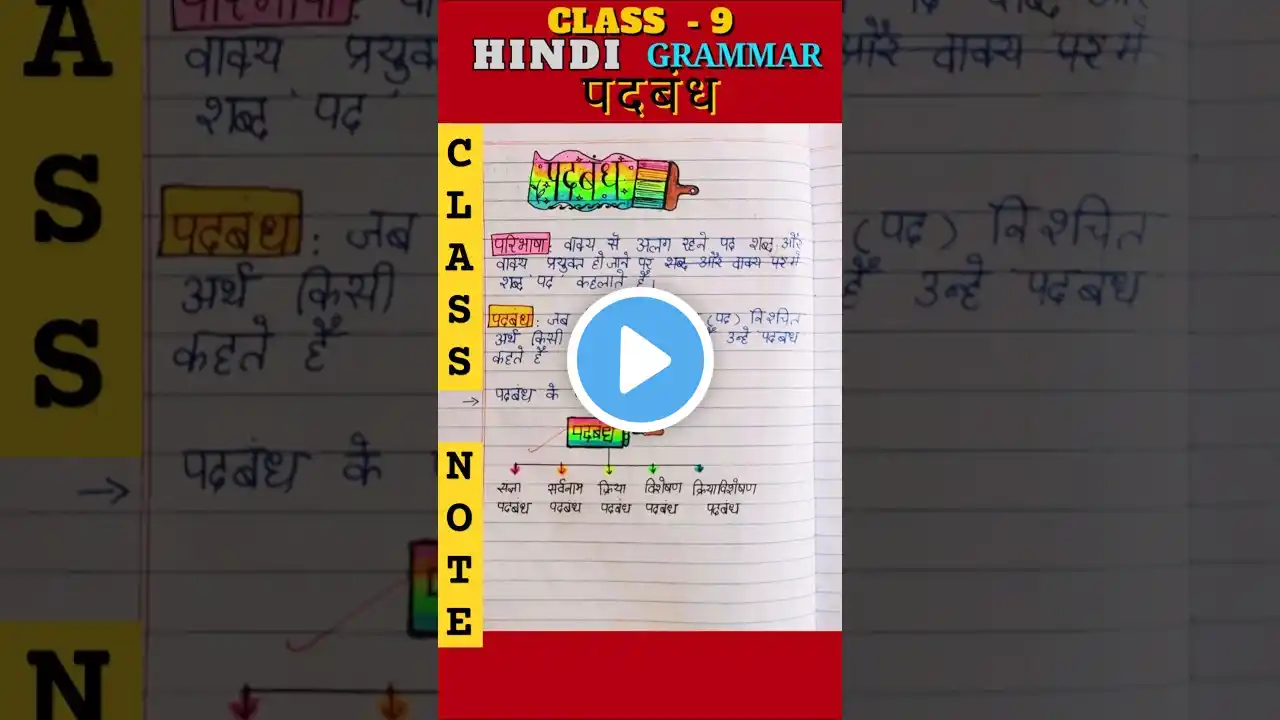 CLASS - 9
HINDI GRAMMAR
पदबंध
CLASS NOTE
पदबंध
परिभाषा: वाक्य से अलग रहने पद शब्द और
वाक्य प्रयुक्त हो जाने पर शब्द और वाक्य पर में
शब्द 'पद' कहलाते हैं।
पदबंध: जब (पद) निश्चित
अर्थ किसी हैं उन्हे पदबंध
कहते हैं
→ पदबंध के
पदबंध
संज्ञा सर्वनाम क्रिया विशेषण क्रियाविशेषण
पदबंध पदबंध पदबंध पदबंध पदबंध